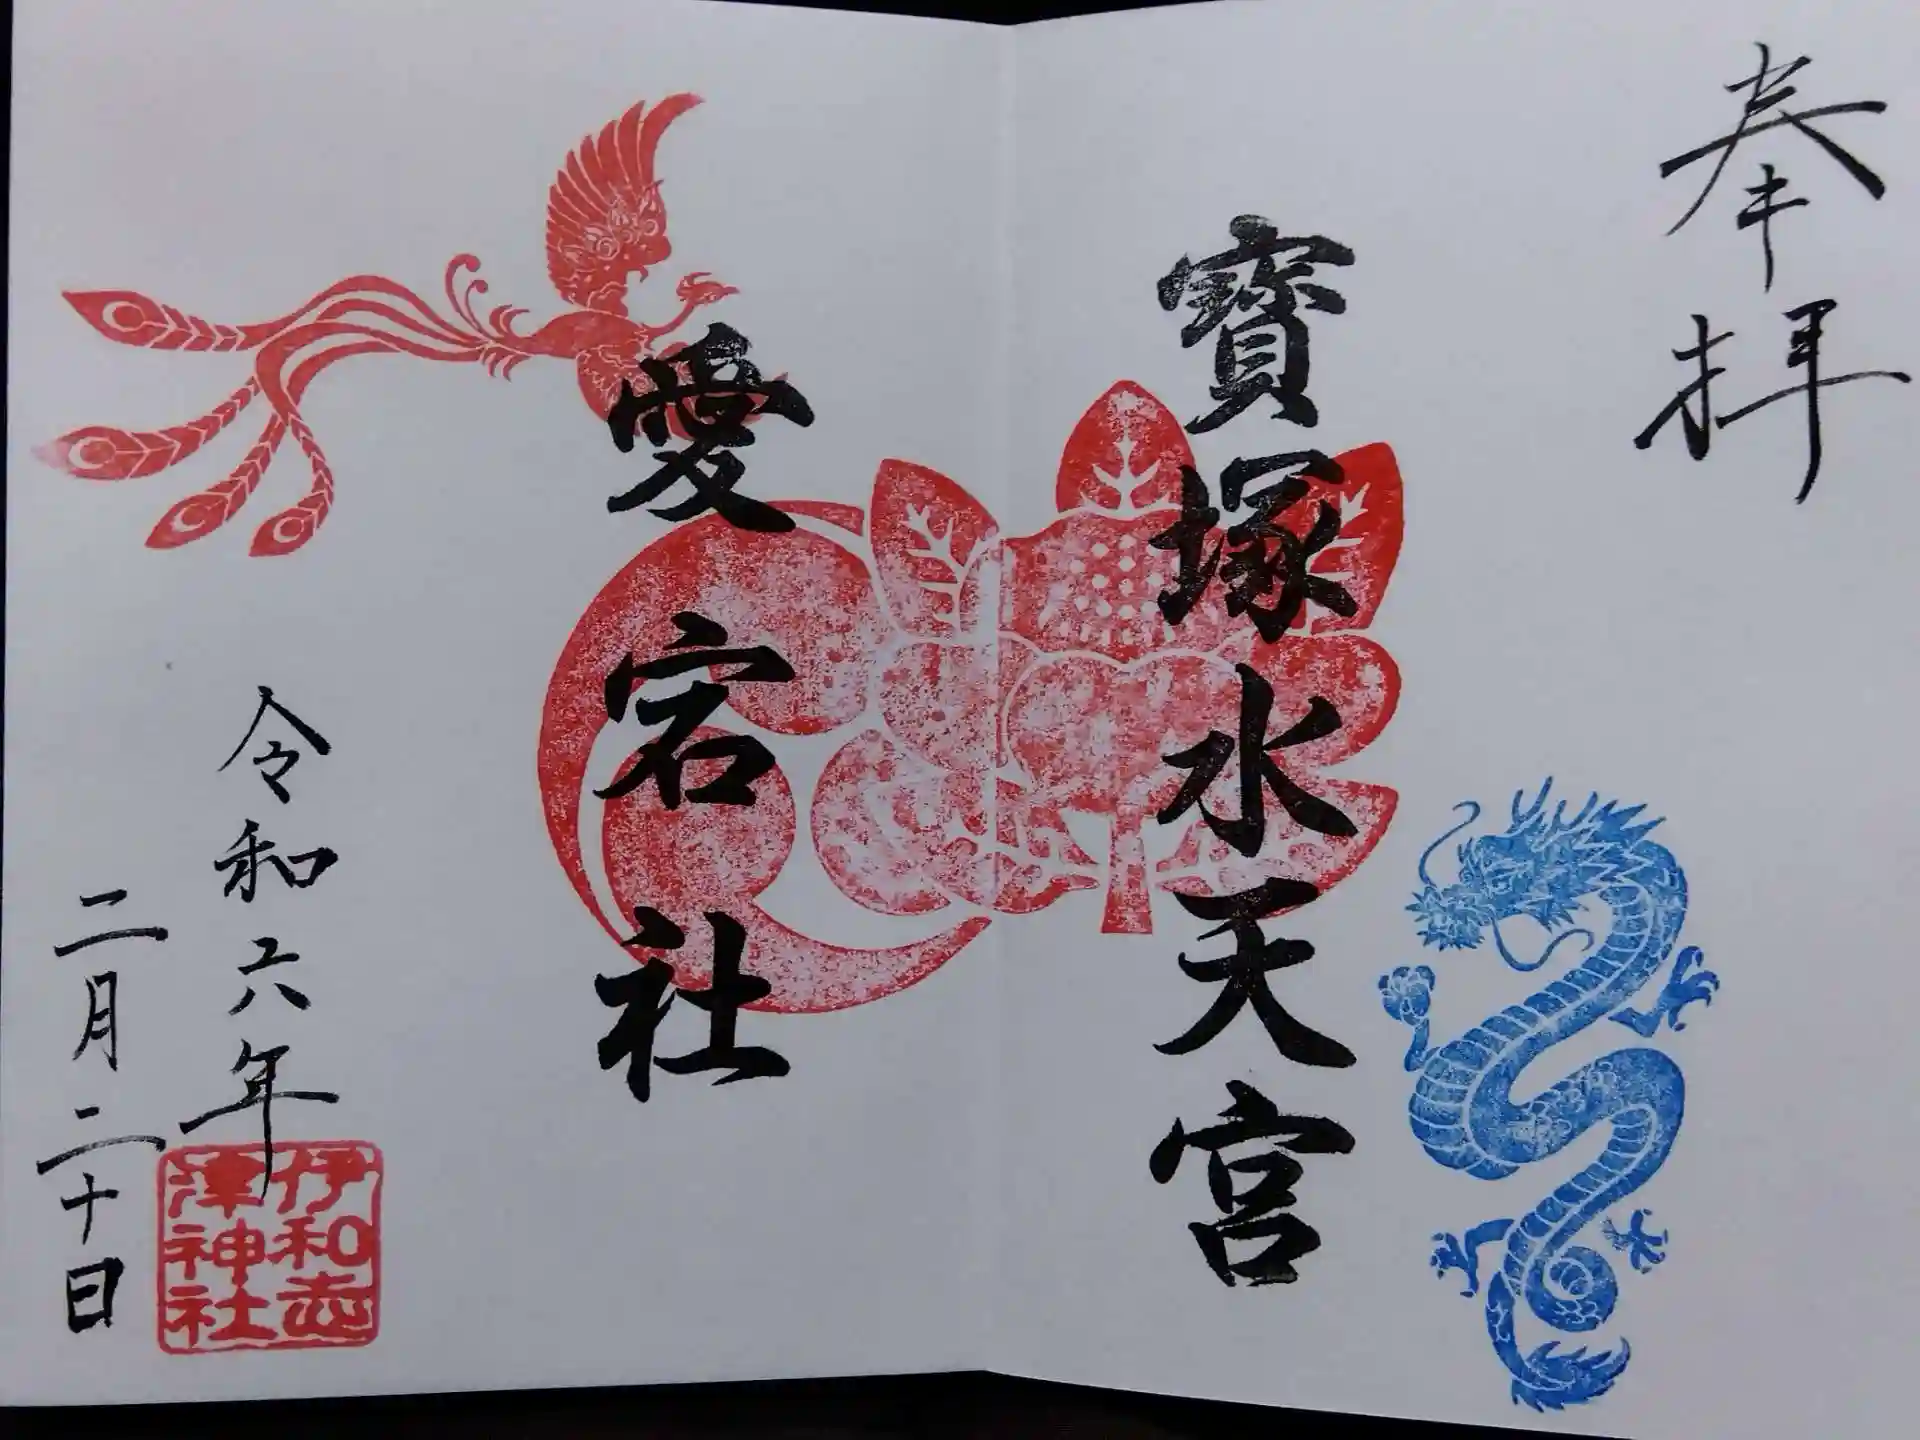 奉拝
寶塚水天宮
愛宕社
令和六年
二月二十日
伊和志
津神社